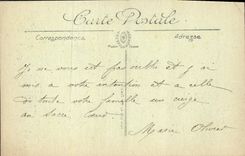 Carte Postale
Correspondance
Adresse
Je ne vous est pas oublié et j ai
mis a votre intention et a celle
de toute votre famille un cierge
au Sacre Cœur
Marie